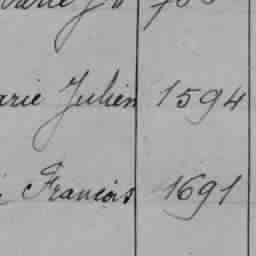 arie Julien 1594
François 1691